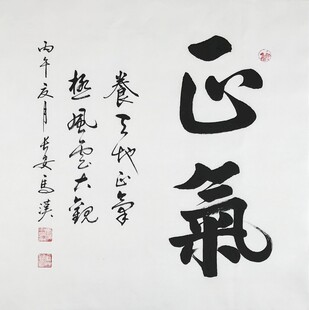 正氣
養天地正氣
極風雲大觀
丙午夏月長安馬漢